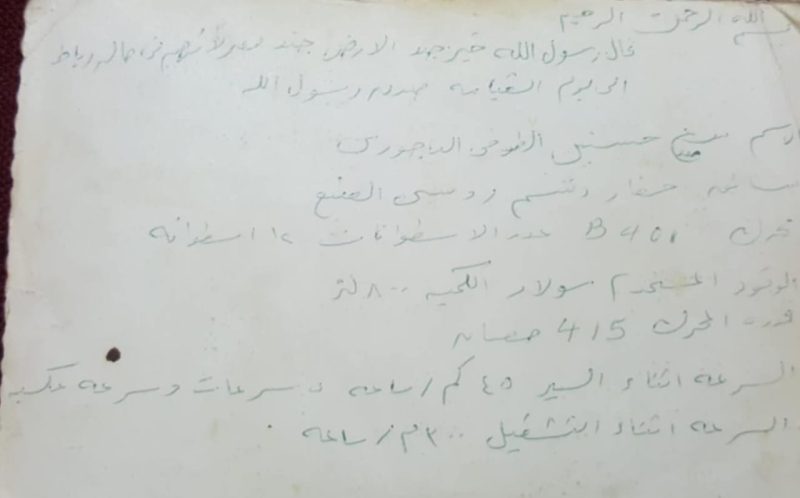 بسم الله الرحمن الرحيم
قال رسول الله خير جند الارض جند مصر لأنهم فى رباط
الى يوم القيامه صدق رسول الله
الاسم حسنين الباجورى
سائق حفار روسى الصنع
محرك B 401 عدد الاسطوانات ١٢ اسطوانه
الوقود المستخدم سولار الكميه ٨٠٠ لتر
قدرت المحرك 415 حصان
السرعه اثناء السير ٤٥ كم / ساعه ٥ سرعات وسرعه عكسيه
السرعه اثناء التشغيل ٣٠٠ م / ساعه